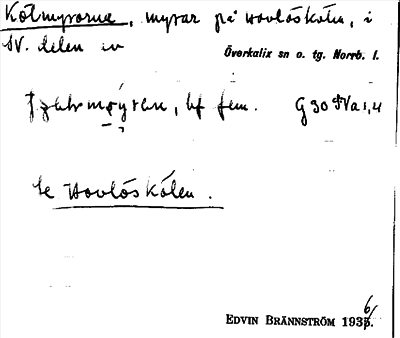 Kölmyrarna, myrar på Hovlösköln, i
SV. delen av
Överkalix sn o. tg. Norrb. l.
bf fem. G 30 f Va 1, 4
Se Hovlöskölen.
EDVIN BRÄNNSTRÖM 1936.